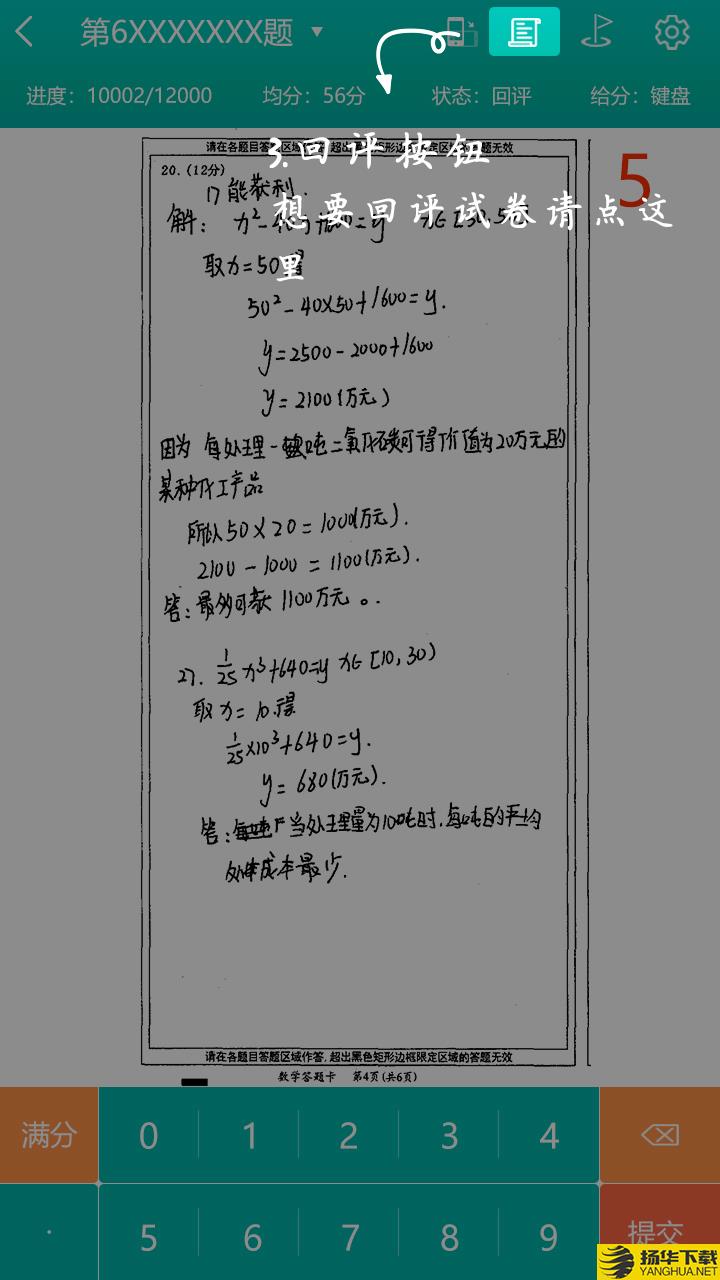 第6XXXXXXX题 ▼
进度：10002/12000 均分：56分 状态：回评 给分：键盘
请在各题目答题区域作答，超出黑色矩形边框限定区域的答题无效
20.（12分）
5
3.回评按钮
想要回评试卷请点这
里
1) 能获利.
解：
取x=50得
50²-40×50+1600=y.
y=2500-2000+1600
y=2100(万元)
因为 每处理一吨二氧化碳可得价值为20万元的
某种化工产品
所以50×20=1000(万元).
2100-1000=1100(万元).
答：最多可获 1100万元。
27. 1/25 x³+640=y x∈[10,30)
取x=10.得
1/25×10³+640=y.
y=680(万元).
答：当处理量为10吨时.每吨的平均
成本最少.
请在各题目答题区域作答，超出黑色矩形边框限定区域的答题无效
数学答题卡 第4页(共6页)
满分 0 1 2 3 4
. 5 6 7 8 9 提交
扬华下载
YANGHUA.NET